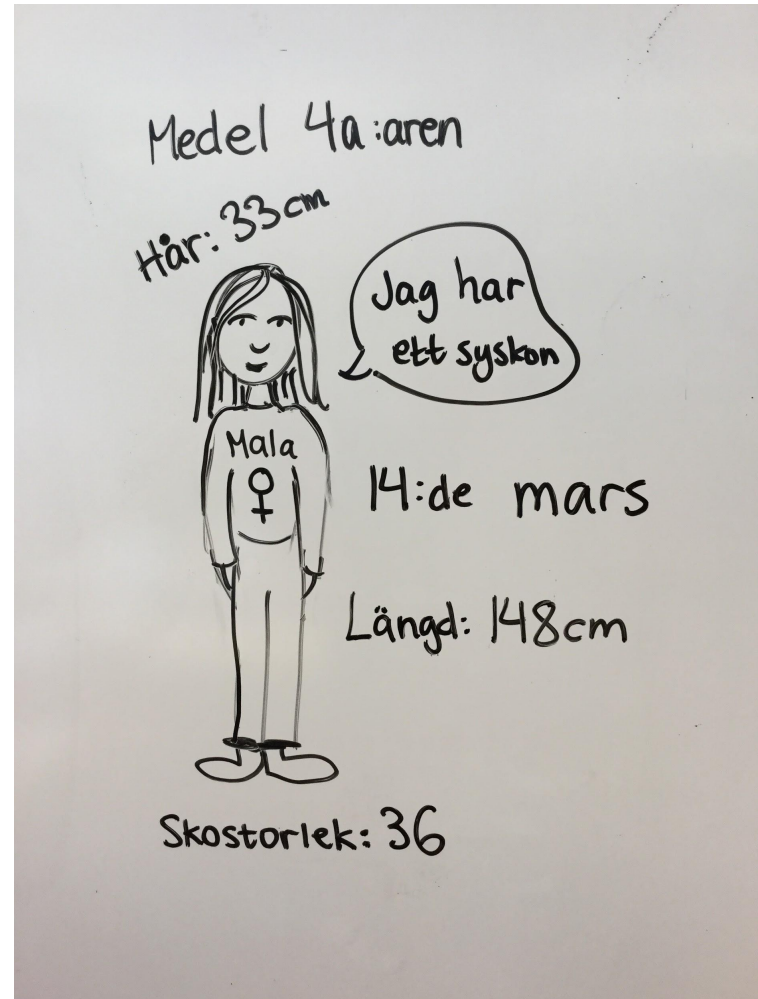 Medel 4a:aren
Hår: 33cm
Jag har
ett syskon
Mala
♀
14:de mars
Längd: 148cm
Skostorlek: 36